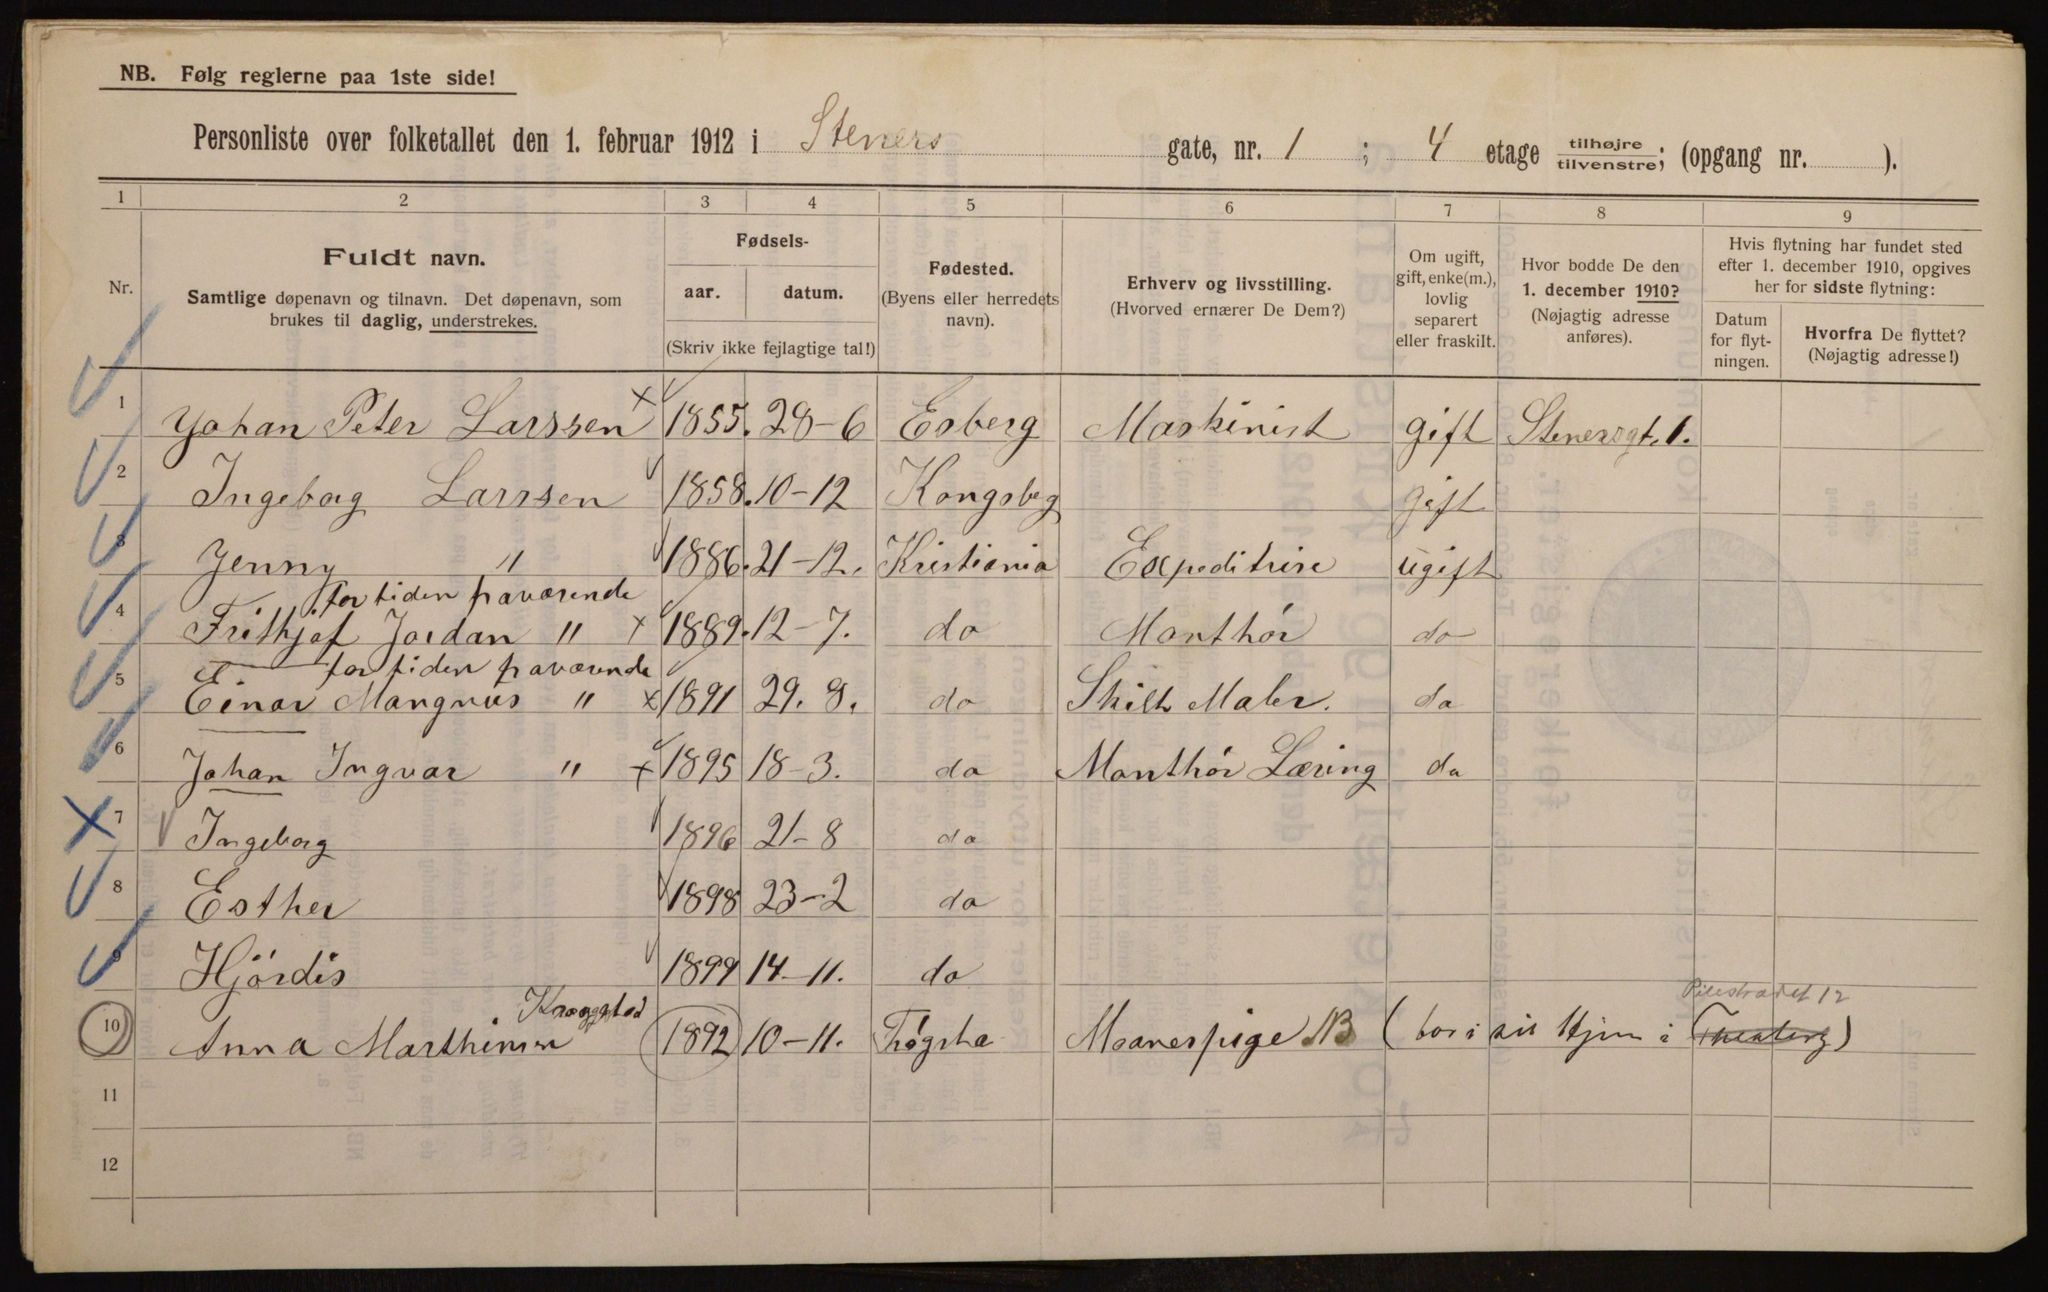 NB. Følg reglerne paa 1ste side!
Personliste over folketallet den 1. februar 1912 i Steners gate, nr. 1 ; 4 etage tilhøjre/tilvenstre; (opgang nr. ).
1 2 3 4 5 6 7 8 9
Nr.
Fuldt navn.
Samtlige døpenavn og tilnavn. Det døpenavn, som
brukes til daglig, understrekes.
Fødsels-
aar. datum.
(Skriv ikke fejlagtige tal!)
Fødested.
(Byens eller herredets
navn).
Erhverv og livsstilling.
(Hvorved ernærer De Dem?)
Om ugift,
gift, enke(m.),
lovlig
separert
eller fraskilt.
Hvor bodde De den
1. december 1910?
(Nøjagtig adresse
anføres).
Hvis flytning har fundet sted
efter 1. december 1910, opgives
her for sidste flytning:
Datum
for flyt-
ningen.
Hvorfra De flyttet?
(Nøjagtig adresse!)
1 Johan Peter Larssen x 1855. 28-6 Esberg Maskinist gift Stenersgt. 1.
2 Ingeborg Larssen 1858. 10-12 Kongsbeg gift
3 Jenny " 1886. 21-12. Kristiania Expeditrise ugift
for tiden fraværende
4 Frithjof Jordan " x 1889. 12-7. do Monthór do
for tiden fraværende
5 Einar Mangnus " x 1891 29. 8. do Skilt Maler. do
6 Johan Ingvar " x 1895 18-3. do Monthór Læring do
7 Ingeborg 1896 21-8 do
8 Esther 1898 23-2 do
9 Hjórdis 1899 14-11. do
Pilestrædet 12
10 Anna Marthinsen Kroggstad 1892 10-11. Maanespige NB (bor i sit Hjem i )
11
12